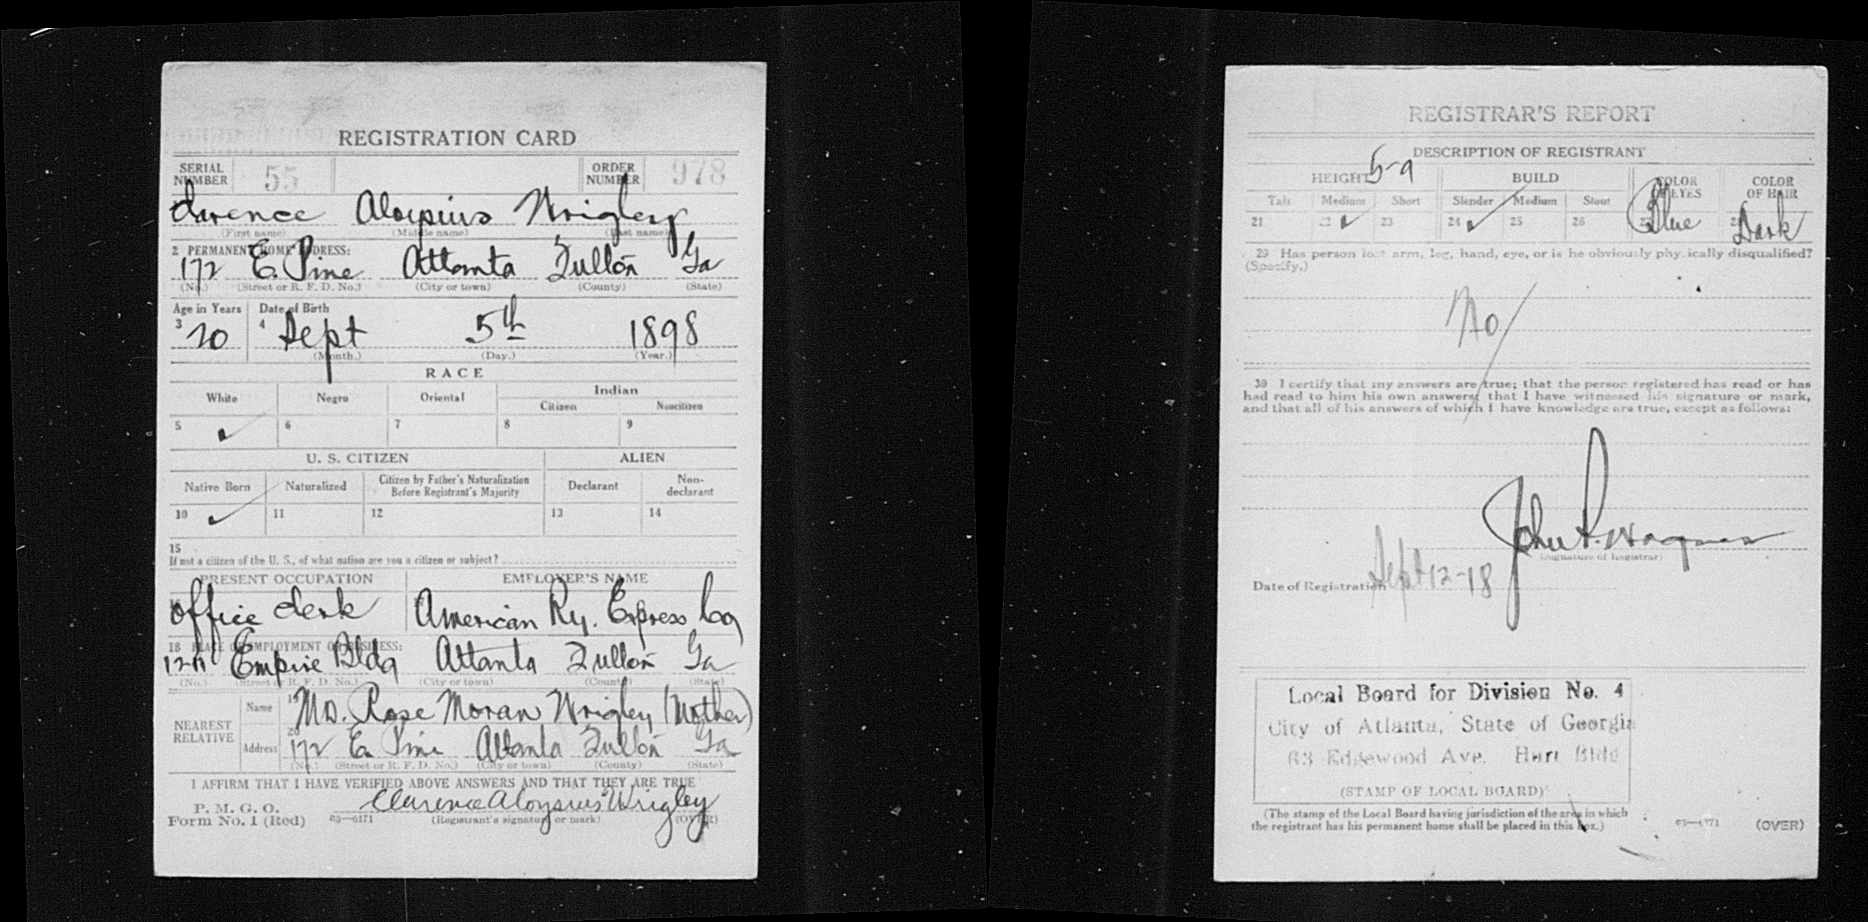 REGISTRATION CARD
SERIAL NUMBER 55 ORDER NUMBER 978
Clarence Aloysius Wrigley
(First name) (Middle name) (Last name)
2 PERMANENT HOME ADDRESS:
172 E. Pine Atlanta Fulton Ga
(No.) (Street or R. F. D. No.) (City or town) (County) (State)
Age in Years Date of Birth
3 20 4 Sept 5th 1898
(Month.) (Day.) (Year.)
RACE
White Negro Oriental Indian
Citizen Noncitizen
5 ✓ 6 7 8 9
U. S. CITIZEN ALIEN
Native Born Naturalized Citizen by Father's Naturalization Before Registrant's Majority Declarant Non-declarant
10 ✓ 11 12 13 14
15
If not a citizen of the U. S., of what nation are you a citizen or subject?
PRESENT OCCUPATION EMPLOYER'S NAME
Office Clerk American Ry. Express Co
18 PLACE OF EMPLOYMENT OR BUSINESS:
Empire Bldg Atlanta Fulton Ga
(No.) (Street or R. F. D. No.) (City or town) (County) (State)
NEAREST RELATIVE
Name 19 Mrs. Rose Moran Wrigley (Mother)
Address 20 172 E. Pine Atlanta Fulton Ga
(No.) (Street or R. F. D. No.) (City or town) (County) (State)
I AFFIRM THAT I HAVE VERIFIED ABOVE ANSWERS AND THAT THEY ARE TRUE
P. M. G. O.
Form No. 1 (Red) 03—6171 Clarence Aloysius Wrigley
(Registrant's signature or mark) (OVER)
REGISTRAR'S REPORT
DESCRIPTION OF REGISTRANT
HEIGHT 5-9 BUILD COLOR OF EYES COLOR OF HAIR
Tall Medium Short Slender Medium Stout
21 22 ✓ 23 24 ✓ 25 26 27 Blue 28 Dark
29 Has person lost arm, leg, hand, eye, or is he obviously physically disqualified?
(Specify.)
No
30 I certify that my answers are true; that the person registered has read or has
had read to him his own answers; that I have witnessed his signature or mark,
and that all of his answers of which I have knowledge are true, except as follows:
John P. Wagner
(Signature of Registrar)
Date of Registration Sept 12-18
Local Board for Division No. 4
City of Atlanta, State of Georgia
63 Edgewood Ave. Hurt Bldg
(STAMP OF LOCAL BOARD)
(The stamp of the Local Board having jurisdiction of the area in which
the registrant has his permanent home shall be placed in this box.)
03—6171 (OVER)